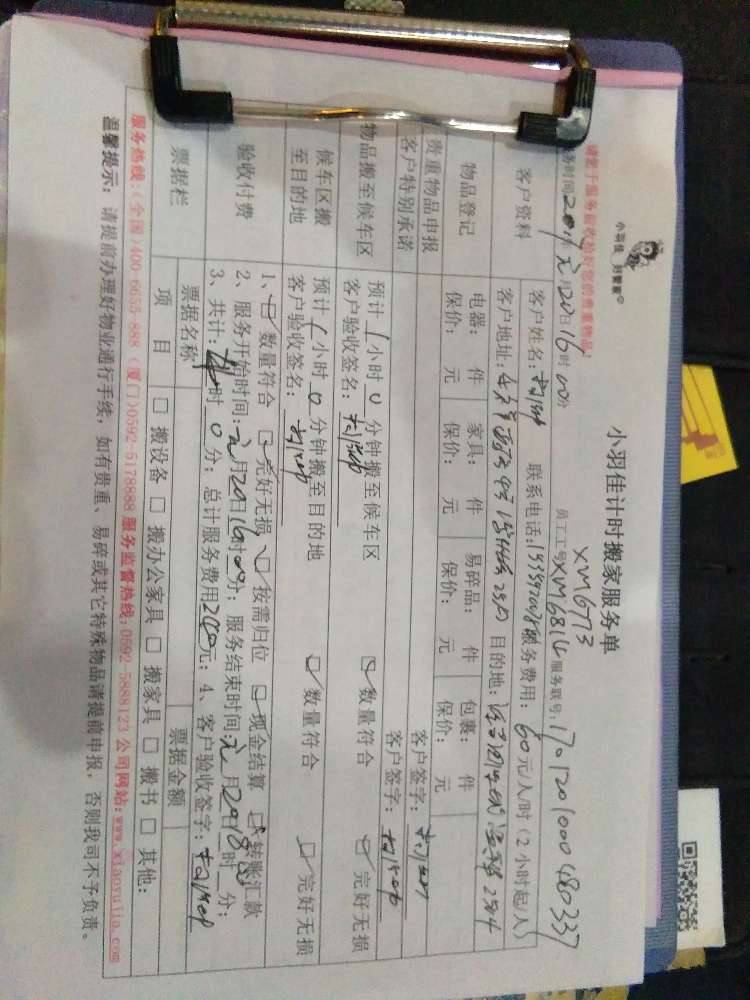 小羽佳 好管家
小羽佳计时搬家服务单
XM6773
请您于服务前收拾好您的贵重物品:
务时间 年元月20日16时00分 员工工号XM6814 服务联号:1701201000480337
客户资料
客户姓名: 联系电话: 服务费用:60元/人/时(2小时起/人)
客户地址: 目的地:
物品登记
电器: 件 家具: 件 易碎品: 件 包裹: 件
保价: 元 保价: 元 保价: 元 保价: 元
贵重物品申报 客户签字:
客户特别承诺 客户签字:
物品搬至候车区
预计1小时0分钟搬至候车区 数量符合 完好无损
客户验收签名:
候车区搬至目的地
预计1小时0分钟搬至目的地 数量符合 完好无损
客户验收签名:
验收付费
1、数量符合 完好无损 按需归位 现金结算 转账汇款
2、服务开始时间:元月20日16时00分; 服务结束时间:元月20日18时 分;
3、共计: 时0分; 总计服务费用240元; 4、客户验收签字:
票据栏
票据名称 票据金额
项目 □ 搬设备 □ 搬办公家具 □ 搬家具 □ 搬书 □ 其他:
服务热线:(全国)400-6655-888 (厦门)0592-5178888 服务监督热线:0592-5888123 公司网站:www.xiaoyujia.com
温馨提示: 请提前办理好物业通行手续, 如有贵重、易碎或其它特殊物品请提前申报, 否则我司不予负责。